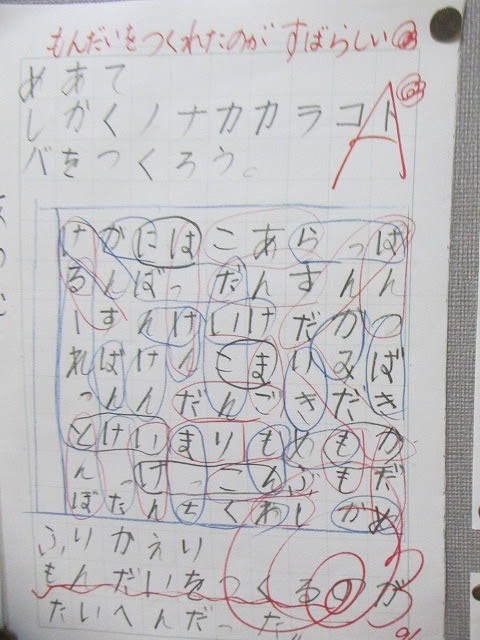 もんだいをつくれたのが すばらしい
めあて
しかくノナカカラコト
べをつくろう。
けがにはこあらっぱ
るんばっだんすんん
ーすんけいけだがつ
ればけんこまりみば
っんんだんごきだき
とけいまりもめもか
んっけっこんぶもだ
ぼたんちくわしかめ
ふりかえり
もんだいをつくるのが
たいへんだった